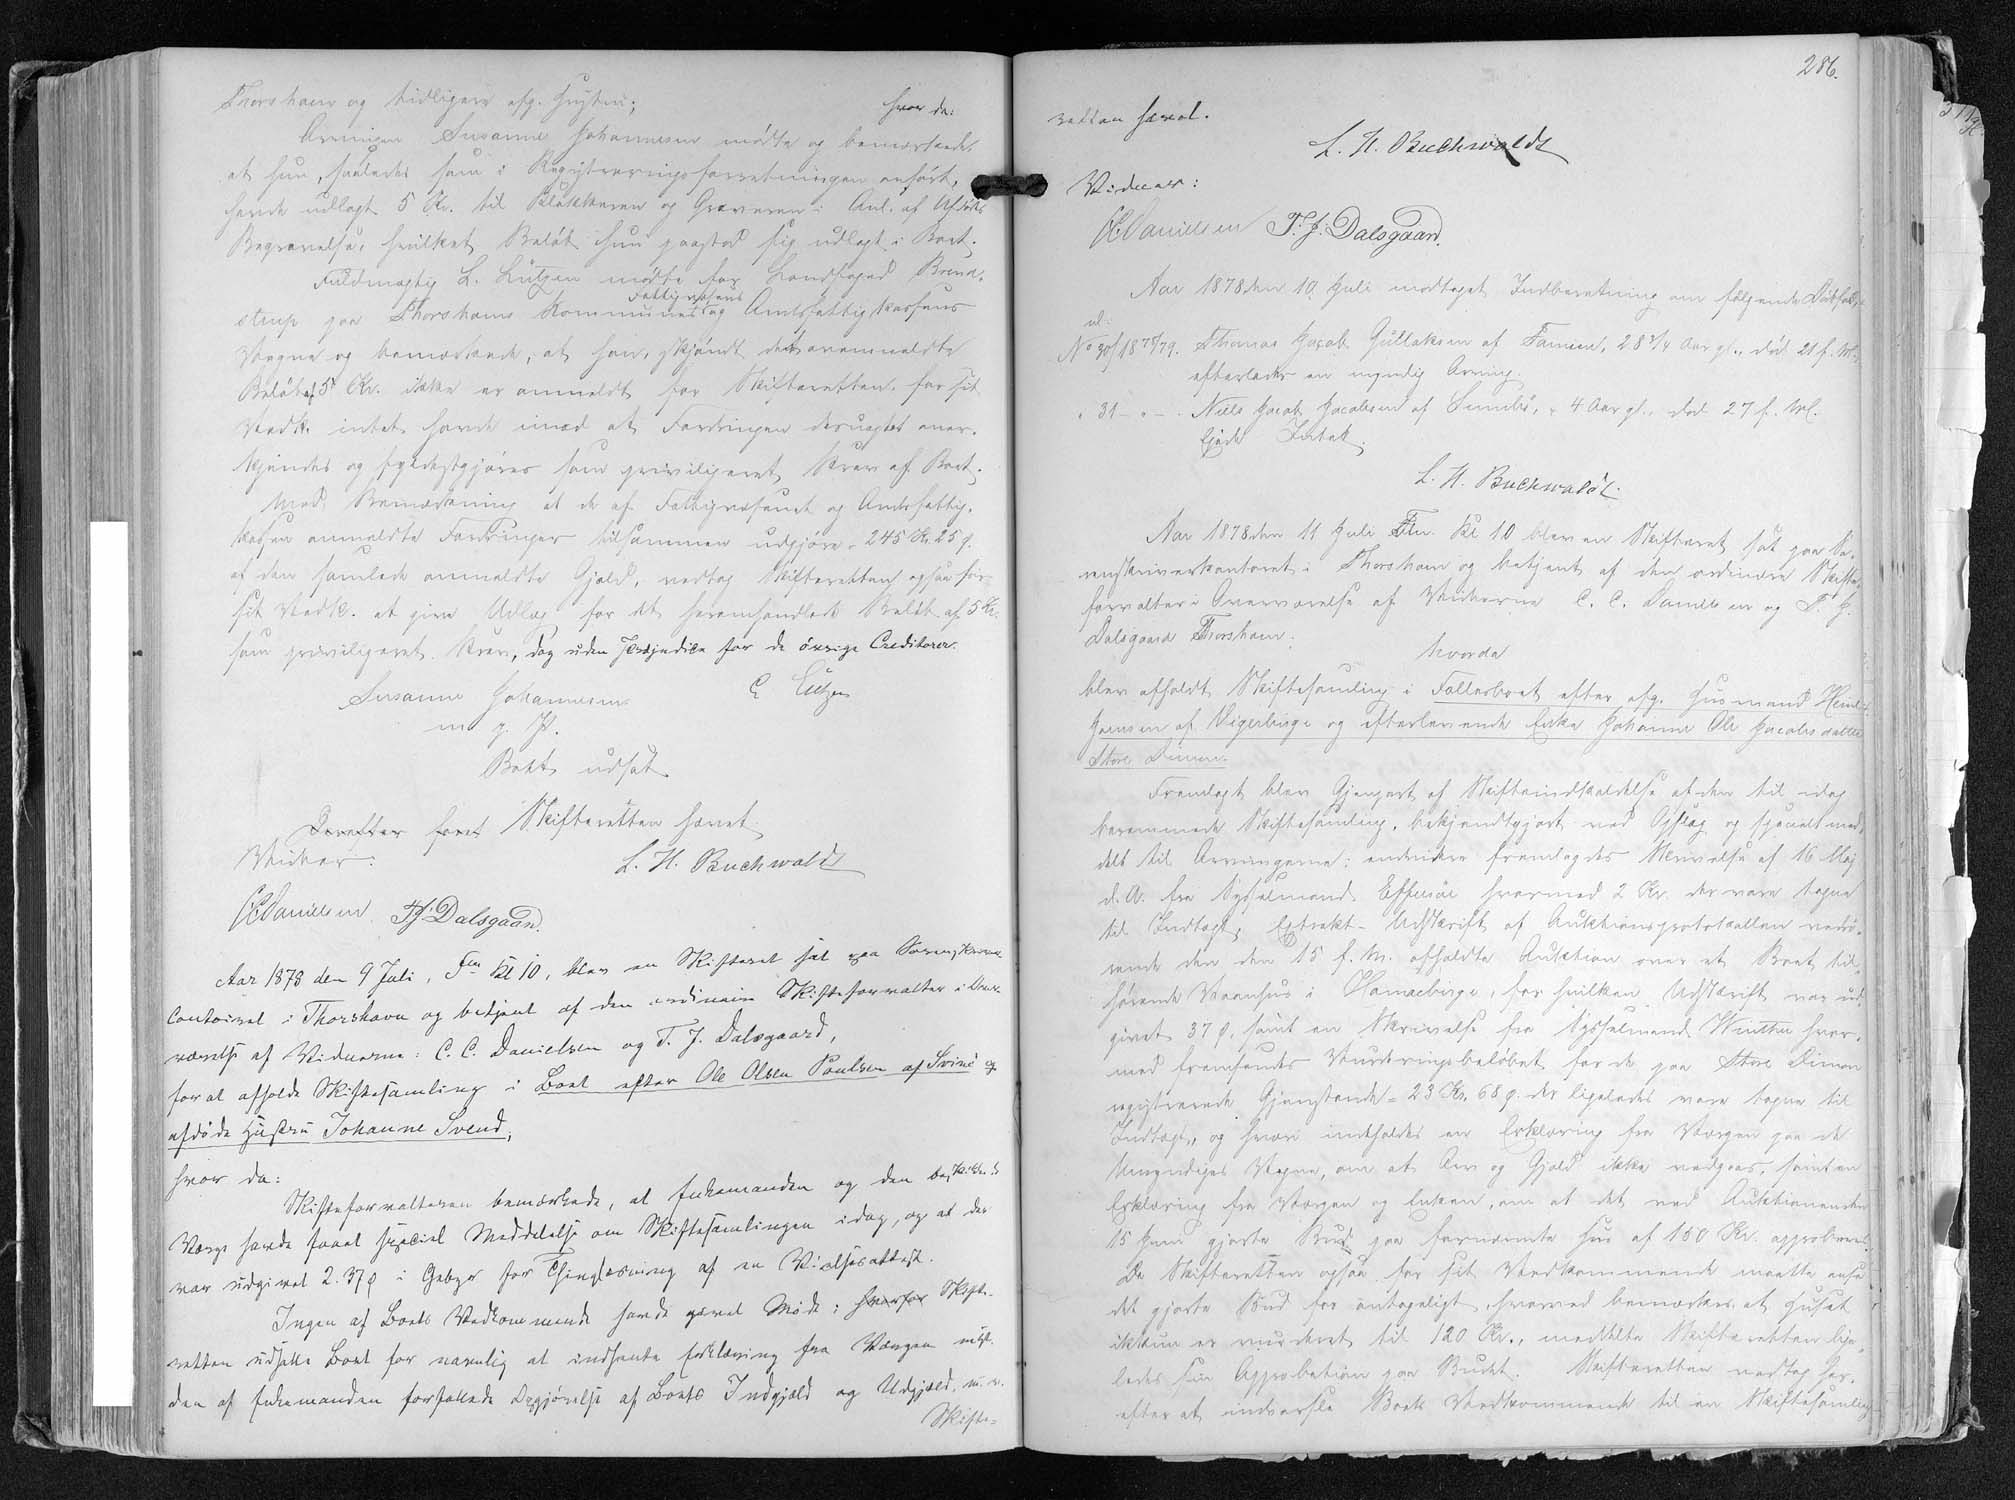 Thorshavn og tidligere afg. Hustru;
hvor da:
Arvingen Susanne Johannesen mødte og bemærkede
at hun, saaledes som i Registreringsforretningen anført,
havde udlagt 5 Kr. til Klokkeren og Graveren i Anl. af Afdødes
Begravelse, hvilket Beløb hun paastod sig udlagt i Boet.
Fuldmægtig L. Lützen mødte for Landfoged Brund-
strup paa Thorshavns Kommunes Fattigvæsens og Amtsfattigkassens
Vegne og bemærkede, at han, skjøndt det ovenmeldte
Beløb af 5 Kr. ikke er anmeldt for Skifteretten for sit
Vedk. intet havde imod at Fordringen desuagtet aner-
kjendes og fyldestgjøres som priviligeret Krav af Boet.
Med Bemærkning at de af Fattigvæsenet og Amtsfattig-
kassen anmeldte Fordringer tilsammen udgjøre 245 Kr. 25 ø.
af den samlede anmeldte Gjæld, vedtog Skifteretten ogsaa for
sit Vedk. at give Udlæg for det heromhandlede Beløb af 5 Kr.
som priviligeret Krav, dog uden Præjudice for de øvrige Creditorer.
Susanne Johannesen L Lützen
m. p. P.
Boet udsat
Derefter foret Skifteretten hævet
Vidner: L. H. Buchwaldt
CCDanielsen TJ. Dalsgaard.
Aar 1878 den 9 Juli, Fm Kl 10, blev en Skifteret sat paa Sorenskriver
Contoiret i Thorshavn og betjent af den ordinaire Skifteforvalter i Over-
værelse af Vidnerne: C. C. Danielsen og T. J. Dalsgaard,
for at afholde Skiftesamling i Boet efter Ole Olsen Poulsen af Svinø og
afdøde Hustru Johanne Svend;
hvor da:
Skifteforvalteren bemærkede, at Enkemanden og den beskikkede
Værge havde faaet special Meddelelse om Skiftesamlingen idag, og at der
var udgivet 2.37 ø i Gebyr for Thinglæsning af en Vielsesattest.
Ingen af Boets Vedkommende havde givet Møde; hvorfor Skifte-
retten udsatte Boet for navnlig at indhente Erklæring fra Værgen angl.
den af Enkemanden forfattede Opgjørelse af Boets Indgjæld og Udgjæld, m. v.
Skifte-
286.
retten hævet.
L. H. Buchwaldt
Vidner:
CCDanielsen T. J. Dalsgaard.
Aar 1878 den 10. Juli modtaget Indberetning om følgende Dødsfald,
nl:
No 30/1878/79. Thomas Jacob Gullaksen af Famien, 28 3/4 Aar gl., død 21 f. M.,
efterlader en myndig Arving.
" 31 — " — . Niels Jacob Jacobsen af Sumbø, 4 Aar gl., død 27 f. M.
Ejede Intet.
L. H. Buchwaldt.
Aar 1878 den 11 Juli Fm. Kl 10 blev en Skifteret sat paa So-
renskriverkontoret i Thorshavn og betjent af den ordinære Skifte-
forvalter i Overværelse af Vidnerne C. C. Danielsen og T. J.
Dalsgaard Thorshavn;
hvorda
blev afholdt Skiftesamling i Fællesboet efter afg. Husmand
Joensen af Vigerbirge og efterlevende Enke Johanne Ole Jacobsdatter
Store Dimon.
Fremlagt blev Gjenpart af Skifteindkaldelse at den til idag
berammede Skiftesamling, bekjendtgjort ved Opslag og specielt med-
delt til Arvingerne; endvidere fremlagdes Skrivelse af 16 Maj
d. A. fra Sysselmand Effersøe hvormed 2 Kr. der vare tagne
til Indtægt, Extrakt-Udskrift af Auktionsprotokollen vedrø-
rende den den 15 f. M. afholdte Auktion over et Boet til-
hørende Vaanhus i Hamrebirge, for hvilken Udskrift var ud-
givet 37 ø, samt en Skrivelse fra Sysselmand Winther hvor-
med fremsendes Vurderingsbeløbet for de paa Store Dimon
registrerede Gjenstande = 23 Kr. 68 ø. der ligeledes vare tagne til
Indtægt, og hvori indholdes en Erklæring fra Værgen paa de
Umyndiges Vegne, om at Arv og Gjæld ikke vedgaaes, samt en
Erklæring fra Værgen og Enken, om at det ved Auktionen den
15 Juni gjorte Bud paa fornævnte Hus af 150 Kr. approberes.
Da Skifteretten ogsaa for sit Vedkommende maatte anse
det gjorte Bud for antageligt, hvorved bemærkes at Huset
ikkun er vurderet til 120 Kr., meddelte Skifteretten lige-
ledes sin Approbation paa Budet. Skifteretten vedtog her-
efter at indvarsle Boets Vedkommende til en Skiftesamling